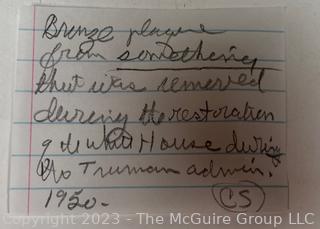 Bronze plaque
from something
that was removed
during the restoration
of the White House during
the Truman admin.
1950.
CS
Copyright © 2023 - The McGuire Group LLC